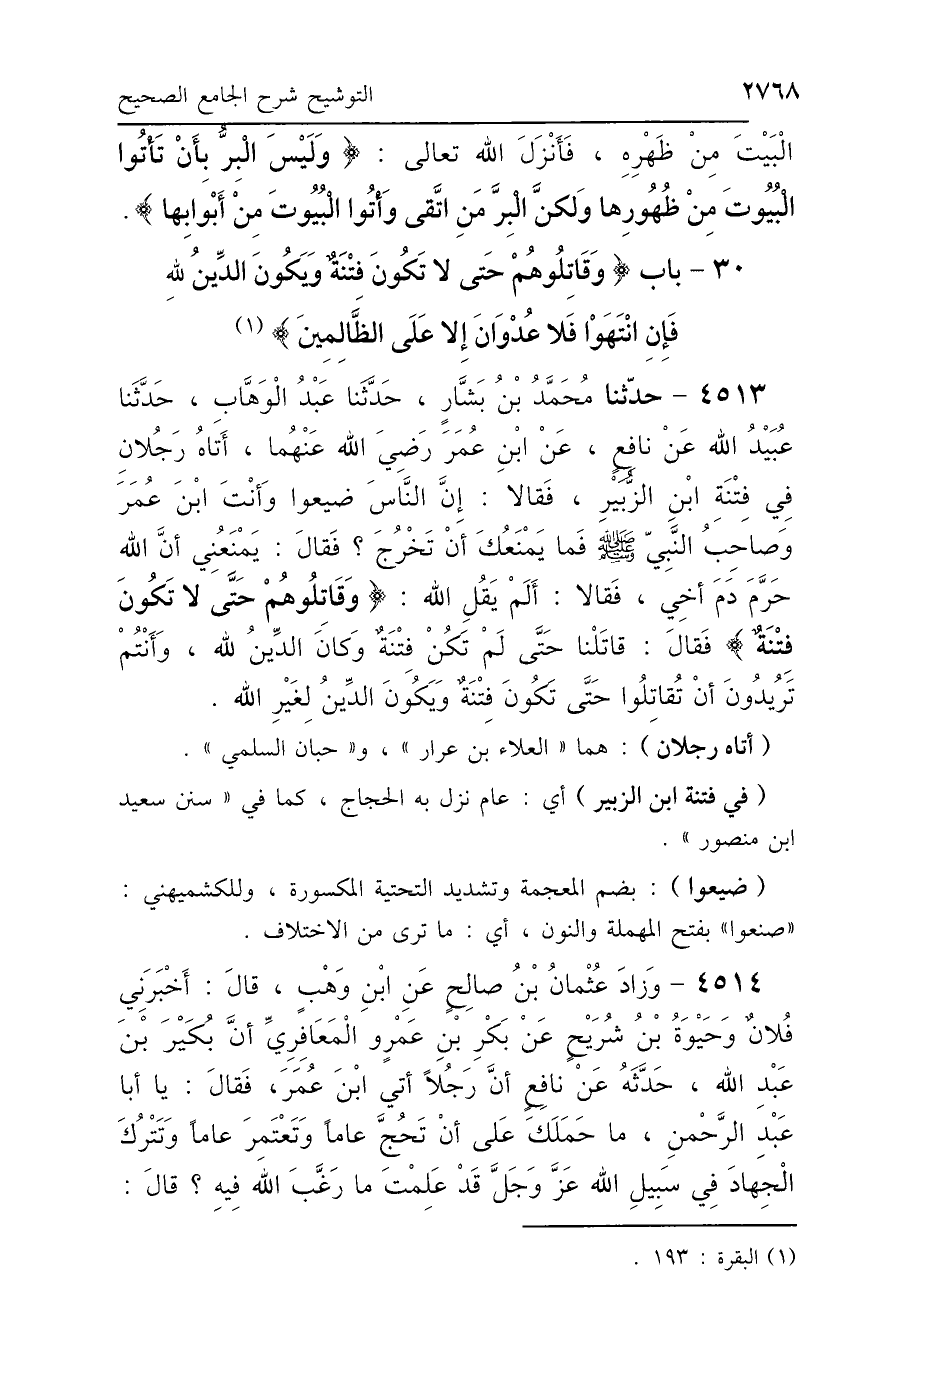 ٢٧٦٨ التوشيح شرح الجامع الصحيح
الْبَيْتَ مِنْ ظَهْرِهِ ، فَأَنْزَلَ الله تعالى : ﴿ وَلَيْسَ الْبِرُّ بِأَنْ تَأْتُوا
الْبُيُوتَ مِنْ ظُهُورِها وَلكنَّ الْبِرَّ مَنِ اتَّقى وَأْتُوا الْبُيُوتَ مِنْ أَبْوابِها ﴾ .
٣٠ - باب ﴿ وَقَاتِلُوهُمْ حَتى لا تَكُونَ فِتْنَةٌ وَيَكُونَ الدِّينُ للهِ
فَإِنِ انْتَهَوْا فَلا عُدْوَانَ إِلا عَلَى الظَّالِمِينَ ﴾ (١)
٤٥١٣ - حدّثنا مُحَمَّدُ بْنُ بَشَّارٍ ، حَدَّثَنا عَبْدُ الْوَهَّابِ ، حَدَّثَنا
عُبَيْدُ الله عَنْ نافِعٍ ، عَنْ ابْنِ عُمَرَ رَضِيَ الله عَنْهُما ، أَتاهُ رَجُلانِ
فِي فِتْنَةِ ابْنِ الزُّبَيْرِ ، فَقالا : إِنَّ النَّاسَ ضيعوا وَأَنْتَ ابْنَ عُمَرَ
وَصاحِبُ النَّبِيِّ ﷺ فَما يَمْنَعُكَ أَنْ تَخْرُجَ ؟ فَقالَ : يَمْنَعُنِي أَنَّ الله
حَرَّمَ دَمَ أَخِي ، فَقالا : أَلَمْ يَقُلِ الله : ﴿ وَقَاتِلُوهُمْ حَتَّى لا تَكُونَ
فِتْنَةٌ ﴾ فَقالَ : قاتَلْنا حَتَّى لَمْ تَكُنْ فِتْنَةٌ وَكانَ الدِّينُ لله ، وَأَنْتُمْ
تَرِيُدُونَ أَنْ تُقاتِلُوا حَتَّى تَكُونَ فِتْنَةٌ وَيَكُونَ الدِّينُ لِغَيْرِ الله .
( أتاه رجلان ) : هما « العلاء بن عرار » ، و« حبان السلمي » .
( في فتنة ابن الزبير ) أي : عام نزل به الحجاج ، كما في « سنن سعيد
ابن منصور » .
( ضيعوا ) : بضم المعجمة وتشديد التحتية المكسورة ، وللكشميهني :
«صنعوا» بفتح المهملة والنون ، أي : ما ترى من الاختلاف .
٤٥١٤ - وَزَادَ عُثْمانُ بْنُ صالِحٍ عَنِ ابْنِ وَهْبٍ ، قالَ : أَخْبَرَنِي
فُلانٌ وَحَيْوَةُ بْنُ شُرَيْحٍ عَنْ بَكْرِ بْنِ عَمْرِو الْمَعَافِرِيِّ أَنَّ بُكَيْرَ بْنَ
عَبْدِ الله ، حَدَّثَهُ عَنْ نافِعٍ أَنَّ رَجُلاً أتي ابْنَ عُمَرَ، فَقالَ : يا أبا
عَبْدِ الرَّحْمنِ ، ما حَمَلَكَ عَلى أَنْ تَحُجَّ عاماً وَتَعْتَمِرَ عاماً وَتَتْرُكَ
الْجِهادَ فِي سَبِيلِ الله عَزَّ وَجَلَّ قَدْ عَلِمْتَ ما رَغَّبَ الله فِيهِ ؟ قالَ :
(١) البقرة : ١٩٣ .